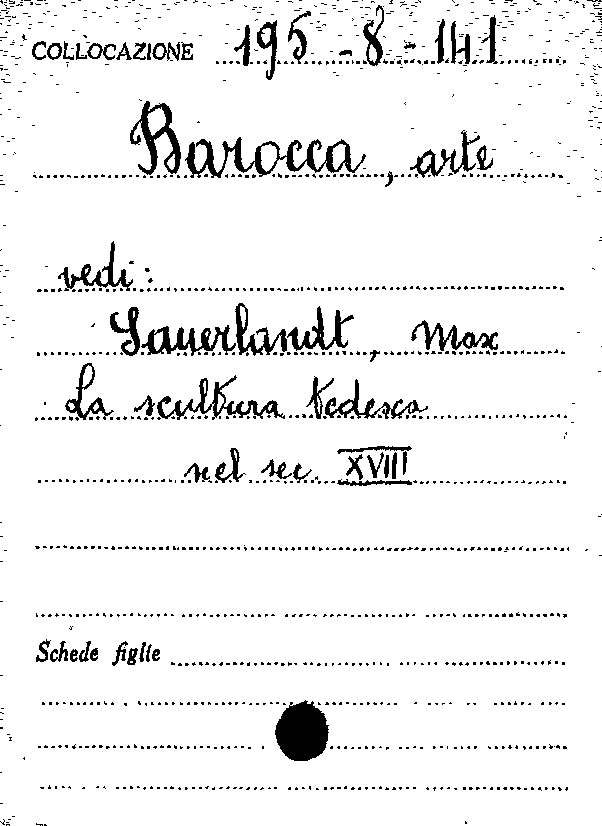 COLLOCAZIONE 195-8-141
Barocca, arte
vedi:
Sauerlandt, Max
La scultura tedesca
nel sec. XVIII
Schede figlie